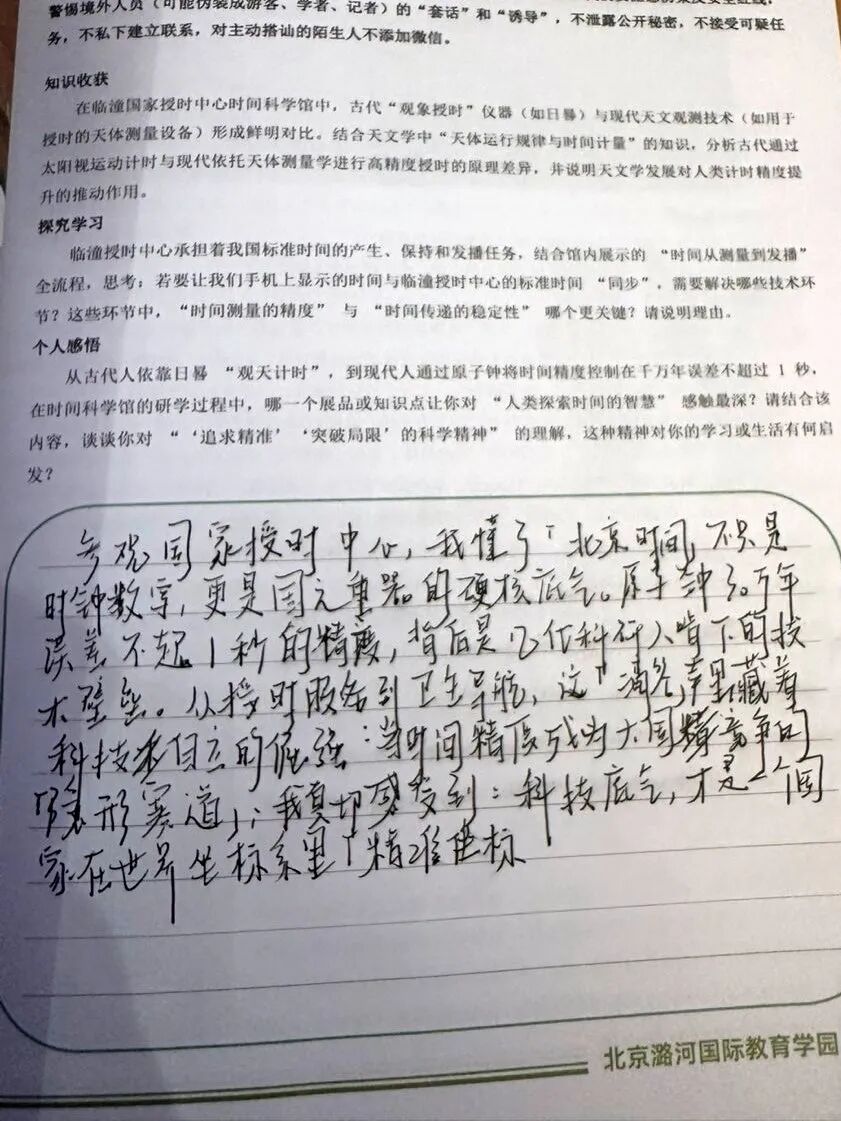 警惕境外人员（可能伪装成游客、学者、记者）的“套话”和“诱导”，不泄露公开秘密，不接受可疑任
务，不私下建立联系，对主动搭讪的陌生人不添加微信。
知识收获
在临潼国家授时中心时间科学馆中，古代“观象授时”仪器（如日晷）与现代天文观测技术（如用于
授时的天体测量设备）形成鲜明对比。结合天文学中“天体运行规律与时间计量”的知识，分析古代通过
太阳视运动计时与现代依托天体测量学进行高精度授时的原理差异，并说明天文学发展对人类计时精度提
升的推动作用。
探究学习
临潼授时中心承担着我国标准时间的产生、保持和发播任务，结合馆内展示的 “时间从测量到发播”
全流程，思考：若要让我们手机上显示的时间与临潼授时中心的标准时间 “同步”，需要解决哪些技术环
节？这些环节中，“时间测量的精度” 与 “时间传递的稳定性” 哪个更关键？请说明理由。
个人感悟
从古代人依靠日晷 “观天计时”，到现代人通过原子钟将时间精度控制在千万年误差不超过 1 秒，
在时间科学馆的研学过程中，哪一个展品或知识点让你对 “人类探索时间的智慧” 感触最深？请结合该
内容，谈谈你对 “‘追求精准’‘突破局限’的科学精神” 的理解，这种精神对你的学习或生活有何启
发？
参观国家授时中心，我懂了「北京时间」不只是
时钟数字，更是国之重器的硬核底气。原子钟30万年
误差不超1秒的精度，背后是几代科研人啃下的技
术壁垒。从授时服务到卫星导航，这「滴答」声里藏着
科技自立的倔强：当时间精度成为大国竞争的
「隐形赛道」，我真切感受到：科技底气，才是一个国
家在世界坐标系里「精准坐标
北京潞河国际教育学园